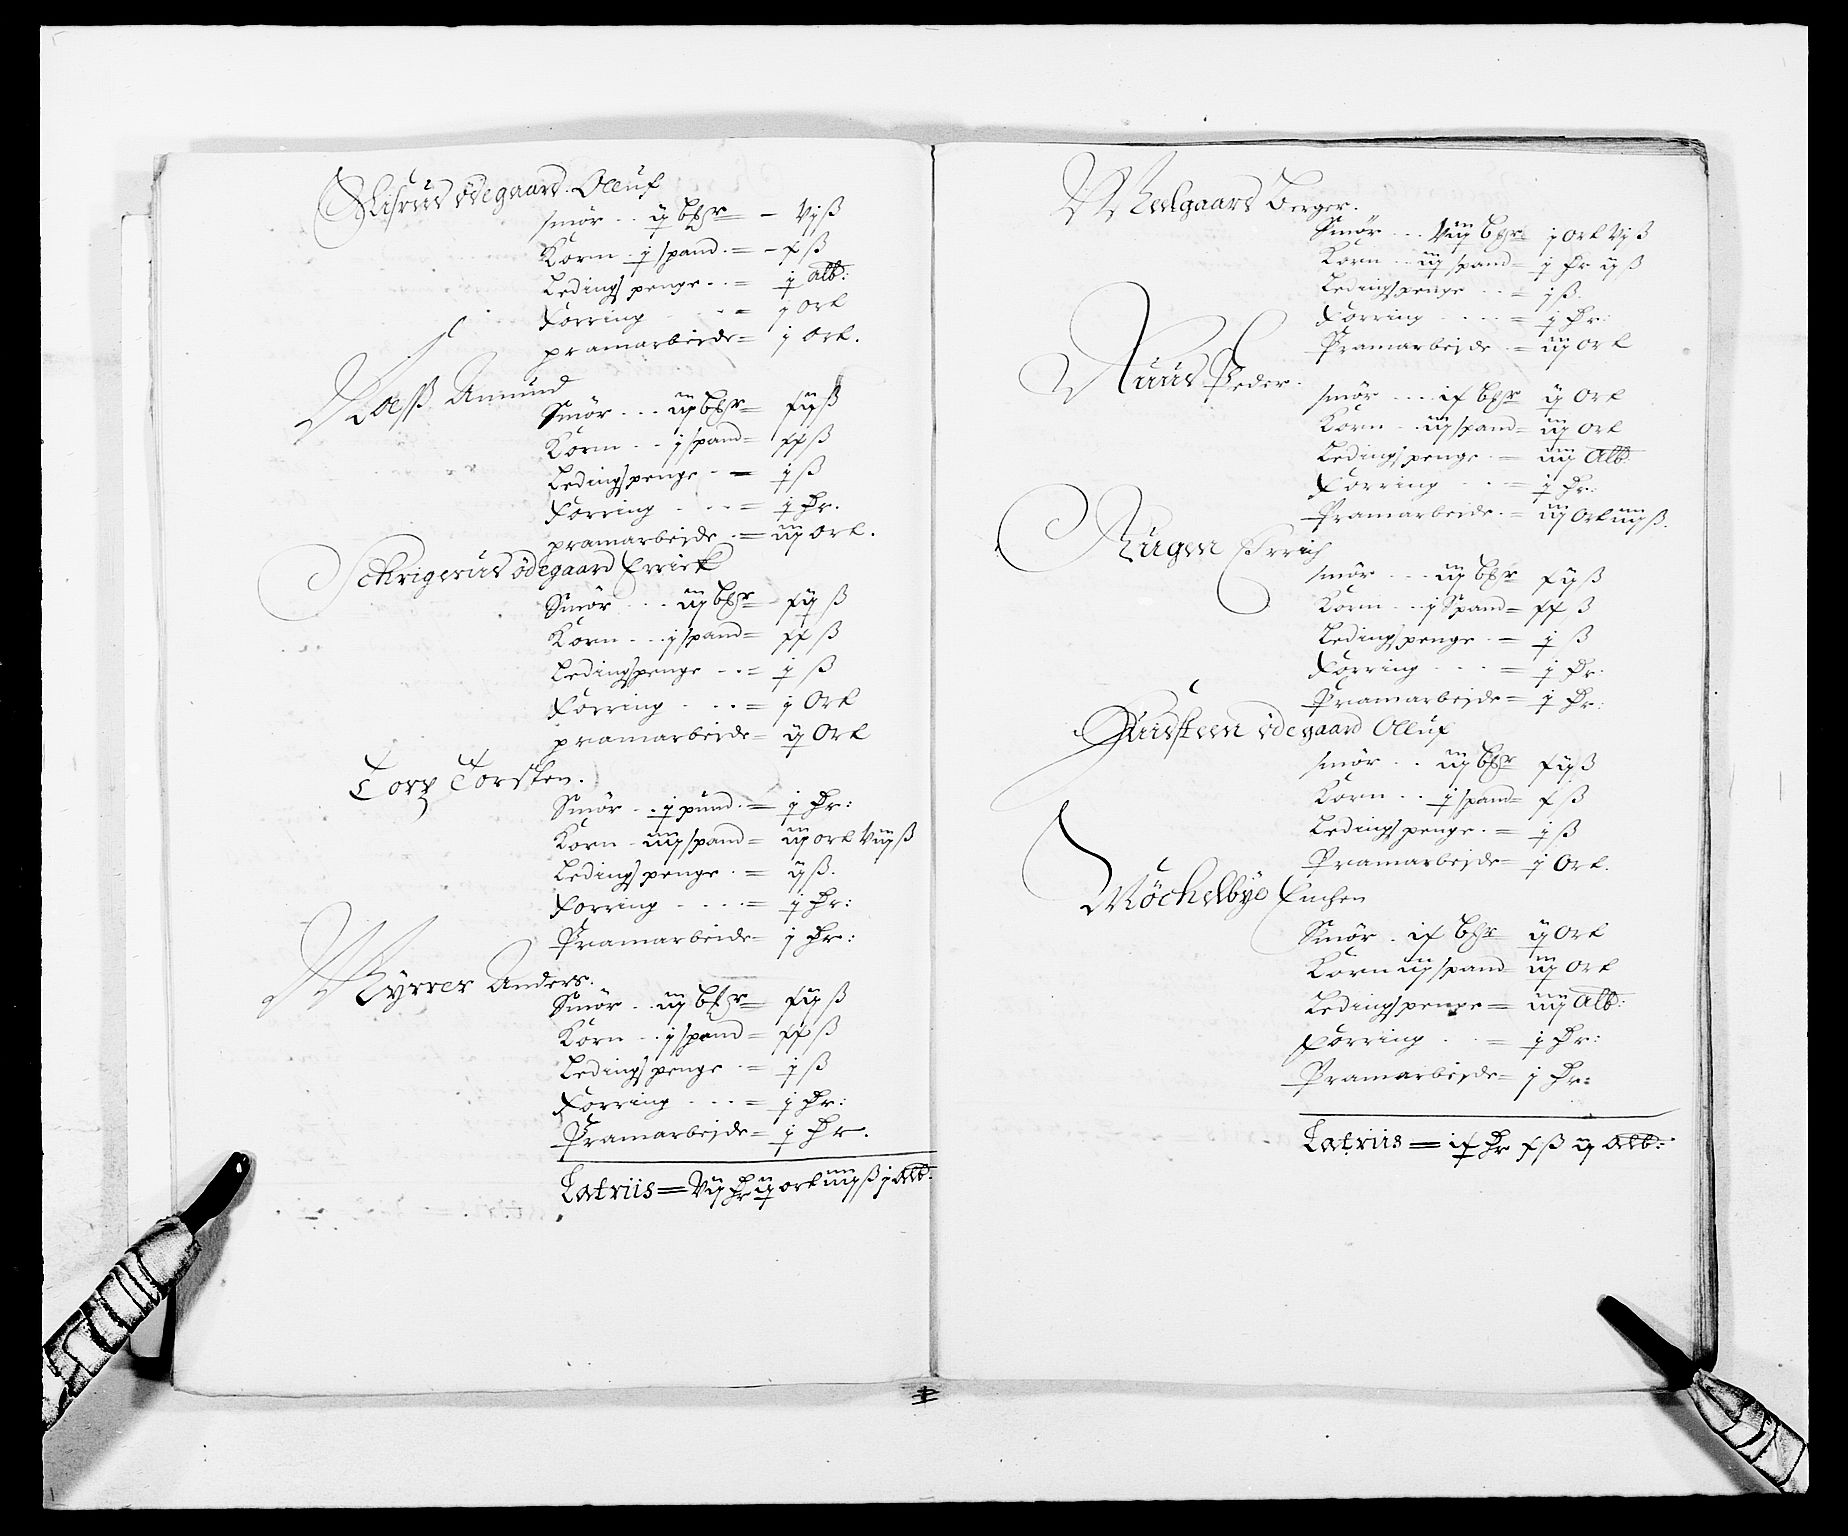 ødegaard. Olluf
smör .. ij bpr = – Vjß
Korn . j spand . = – xß
Ledings penge .. = j alb:
Förring .. = j ort
pramarbeide = j ort.
Aaß. Amund
Smör ... iij bpr = xijß
Korn .. j spand = xxß
Ledingspenge .. = jß
Förring ... = j Dr.
pramarbeide . = iij ort.
Schrigerud ødegaard Errick
Smör ... iij bpr xijß
Korn ... j spand = xxß
Ledingspenge .. = j ß
Förring ... = j Ort
pramarbeide = ij Ort
Torp Torsten.
Smör .. j pund . = j Dr:
Korn . iiij spand = iij ort Viijß
Ledings penge . = ijß.
Forring .... = j Dr:
Pramarbeide = j Dr:
Myrrer Anders.
Smör .. iij bpr = xijß
Korn .. j spand = xxß
Ledings penge . = jß
Förring ... = j Dr:
Pramarbeide = j Dr.
Latriis = Vij Dr ij ort iiijß j alb.
Melgaard Berger.
Smör ... Viij bpr j ort Vjß
Korn .. iij spand = j Dr ijß
Ledingspenge .. = jß.
Förring .... = j Dr:
Pramarbeide . = iij ort
Ruud Peder.
smör .... ix bpr ij ort
Korn .. iij spand = iij ort
Ledings penge . = iiij alb:
Förring ... = j Dr:
Pramarbeide . = iij Ort iiijß.
Haugen Errich
smör ... iij bpr xijß
Korn .. j Spand = xx ß
Ledings penge . = j ß
Förring ... = j Dr:
Pramarbeide = j Dr:
ødegaard Olluf
smör .. iij bpr xijß
Korn .. j spand = xß
Ledings penge . = jß
Pramarbeide = j Ort.
Möchelbye
Smör . ix bpr ij ort
Korn iij spand = iij ort
Ledingspenge = iiij alb:
Förring .. = j Dr:
Pramarbeide = j Dr:
Latriis = ix Dr xß ij alb: